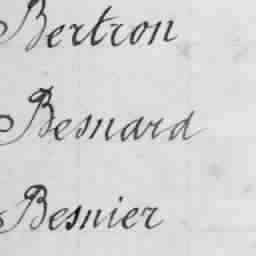 Bertron
Besnard
Besnier